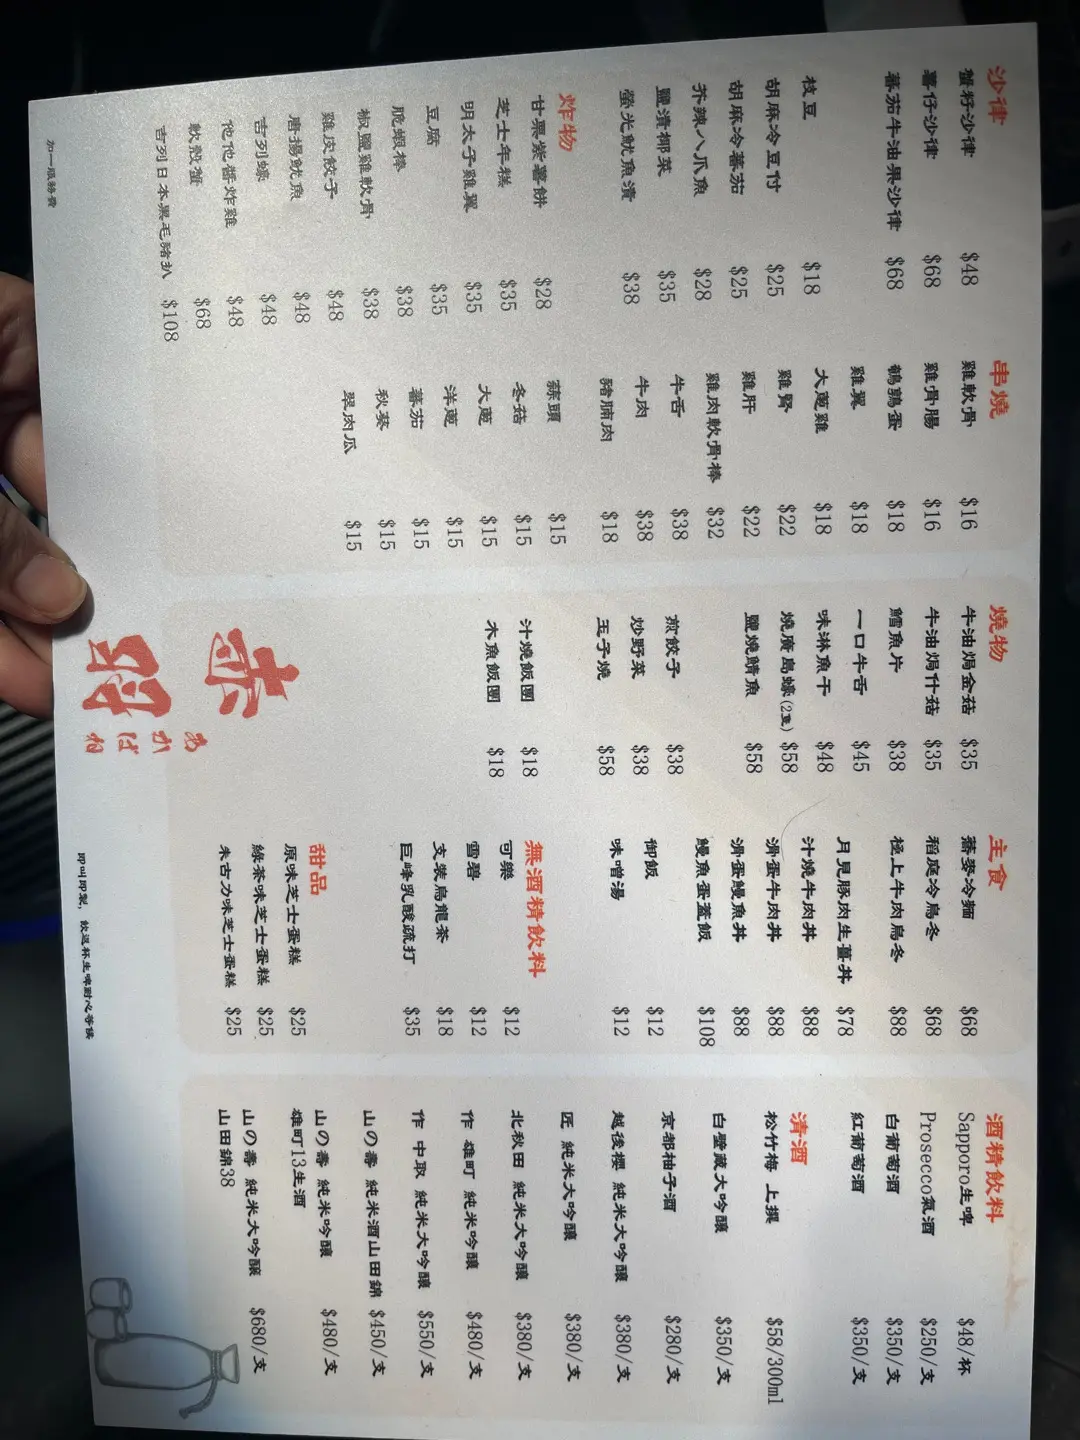 沙律
蟹籽沙律 $48
薯仔沙律 $68
蕃茄牛油果沙律 $68
枝豆 $18
胡麻冷豆付 $25
胡麻冷蕃茄 $25
芥辣八爪魚 $28
鹽漬椰菜 $35
螢光魷魚漬 $38
炸物
甘栗紫薯餅 $28
芝士年糕 $35
明太子雞翼 $35
豆腐 $35
脆蝦棒 $38
椒鹽雞軟骨 $38
雞皮餃子 $48
唐揚魷魚 $48
吉列蠔 $48
他他醬炸雞 $48
軟殼蟹 $68
吉列日本黑毛豬扒 $108
串燒
雞軟骨 $16
雞骨腸 $16
鵪鶉蛋 $18
雞翼 $18
大蔥雞 $18
雞腎 $22
雞肝 $22
雞肉軟骨棒 $32
牛舌 $38
牛肉 $38
豬腩肉 $18
蒜頭 $15
冬菇 $15
大蔥 $15
洋蔥 $15
蕃茄 $15
秋葵 $15
翠肉瓜 $15
加一服務費
燒物
牛油焗金菇 $35
牛油焗什菇 $35
鱈魚片 $38
一口牛舌 $45
味淋魚干 $48
燒廣島蠔(2隻) $58
鹽燒鯖魚 $58
煎餃子 $38
炒野菜 $38
玉子燒 $58
汁燒飯團 $18
木魚飯團 $18
主食
蕎麥冷麵 $68
稻庭冷烏冬 $68
極上牛肉烏冬 $88
月見豚肉生薑丼 $78
汁燒牛肉丼 $88
滑蛋牛肉丼 $88
滑蛋鰻魚丼 $88
鰻魚蛋蓋飯 $108
御飯 $12
味噌湯 $12
無酒精飲料
可樂 $12
雪碧 $12
支裝烏龍茶 $18
巨峰乳酸疏打 $35
甜品
原味芝士蛋糕 $25
綠茶味芝士蛋糕 $25
朱古力味芝士蛋糕 $25
酒精飲料
Sapporo生啤 $48/杯
Prosecco氣酒 $250/支
白葡萄酒 $350/支
紅葡萄酒 $350/支
清酒
松竹梅 上撰 $58/300ml
白壁蔵大吟釀 $350/支
京都柚子酒 $280/支
越後櫻 純米大吟釀 $380/支
匠 純米大吟釀 $380/支
北秋田 純米大吟釀 $380/支
作 雄町 純米吟釀 $480/支
作 中取 純米大吟釀 $550/支
山の壽 純米酒山田錦 $450/支
山の壽 純米吟釀 $480/支
雄町13生酒
山の壽 純米大吟釀 $680/支
山田錦38
即叫即製，飲返杯生啤耐心等候